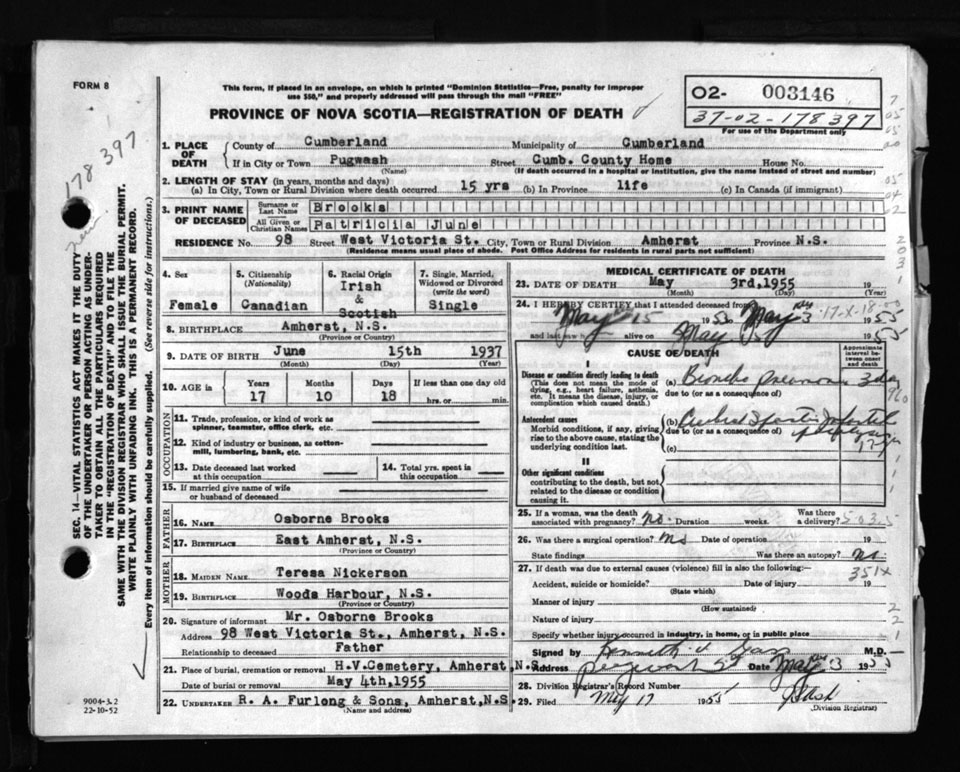 FORM 8
This form, if placed in an envelope, on which is printed "Dominion Statistics—Free, penalty for improper
use $50," and properly addressed will pass through the mail "FREE"
PROVINCE OF NOVA SCOTIA—REGISTRATION OF DEATH
O2- 003146
37-02-178397
For use of the Department only
178 397
SEC. 14—VITAL STATISTICS ACT MAKES IT THE DUTY
OF THE UNDERTAKER OR PERSON ACTING AS UNDER-
TAKER TO OBTAIN ALL THE PARTICULARS REQUIRED
IN THE "REGISTRATION OF DEATH" AND TO FILE THE
SAME WITH THE DIVISION REGISTRAR WHO SHALL ISSUE THE BURIAL PERMIT.
WRITE PLAINLY WITH UNFADING INK. THIS IS A PERMANENT RECORD.
Every item of information should be carefully supplied. (See reverse side for instructions.)
1. PLACE OF DEATH
County of Cumberland Municipality of Cumberland
If in City or Town Pugwash Street Cumb. County Home House No.
(Name) (If death occurred in a hospital or institution, give the name instead of street and number)
2. LENGTH OF STAY (in years, months and days)
(a) In City, Town or Rural Division where death occurred 15 yrs (b) In Province life (c) In Canada (if immigrant)
3. PRINT NAME OF DECEASED
Surname or Last Name Brooks
All Given or Christian Names Patricia June
RESIDENCE No. 98 Street West Victoria St. City, Town or Rural Division Amherst Province N.S.
(Residence means usual place of abode. Post Office Address for residents in rural parts not sufficient)
4. Sex
Female
5. Citizenship
(Nationality)
Canadian
6. Racial Origin
Irish
&
Scotish
7. Single, Married,
Widowed or Divorced
(write the word)
Single
8. BIRTHPLACE Amherst, N.S.
(Province or Country)
9. DATE OF BIRTH June 15th 1937
(Month) (Day) (Year)
10. AGE in Years Months Days If less than one day old
17 10 18 hrs. or min.
OCCUPATION
11. Trade, profession, or kind of work as
spinner, teamster, office clerk, etc.
12. Kind of industry or business, as cotton-
mill, lumbering, bank, etc.
13. Date deceased last worked
at this occupation
14. Total yrs. spent in
this occupation
15. If married give name of wife
or husband of deceased
FATHER
16. NAME Osborne Brooks
17. BIRTHPLACE East Amherst, N.S.
(Province or Country)
MOTHER
18. MAIDEN NAME Teresa Nickerson
19. BIRTHPLACE Woods Harbour, N.S.
(Province or Country)
20. Signature of informant Mr. Osborne Brooks
Address 98 West Victoria St., Amherst, N.S.
Relationship to deceased Father
21. Place of burial, cremation or removal H.V.Cemetery, Amherst,N.S
Date of burial or removal May 4th,1955
22. UNDERTAKER R. A. Furlong & Sons, Amherst,N.S.
(Name and address)
9004-3.2
22-10-52
MEDICAL CERTIFICATE OF DEATH
23. DATE OF DEATH May 3rd,1955 19
(Month) (Day) (Year)
24. I HEREBY CERTIFY that I attended deceased from
May 15 1953 to May 3 1955
and last saw h alive on May 1955
CAUSE OF DEATH
Approximate
interval be-
tween onset
and death
I
Disease or condition directly leading to death
(This does not mean the mode of
dying, e.g., heart failure, asthenia,
etc. It means the disease, injury, or
complication which caused death.)
(a) Broncho pneumonia 3 day
due to (or as a consequence of)
Antecedent causes
Morbid conditions, if any, giving
rise to the above cause, stating the
underlying condition last.
(b)
due to (or as a consequence of)
(c)
II
Other significant conditions
contributing to the death, but not
related to the disease or condition
causing it.
25. If a woman, was the death
associated with pregnancy? No. Duration weeks. Was there
a delivery?
26. Was there a surgical operation? No Date of operation 19
State findings Was there an autopsy? No.
351X
27. If death was due to external causes (violence) fill in also the following:—
Accident, suicide or homicide? Date of injury 19
(State which)
Manner of injury
(How sustained)
Nature of injury
Specify whether injury occurred in industry, in home, or in public place
Signed by Kenneth M.D.
Address Date May 3 1955
28. Division Registrar's Record Number
29. Filed May 17 1955
(Division Registrar)